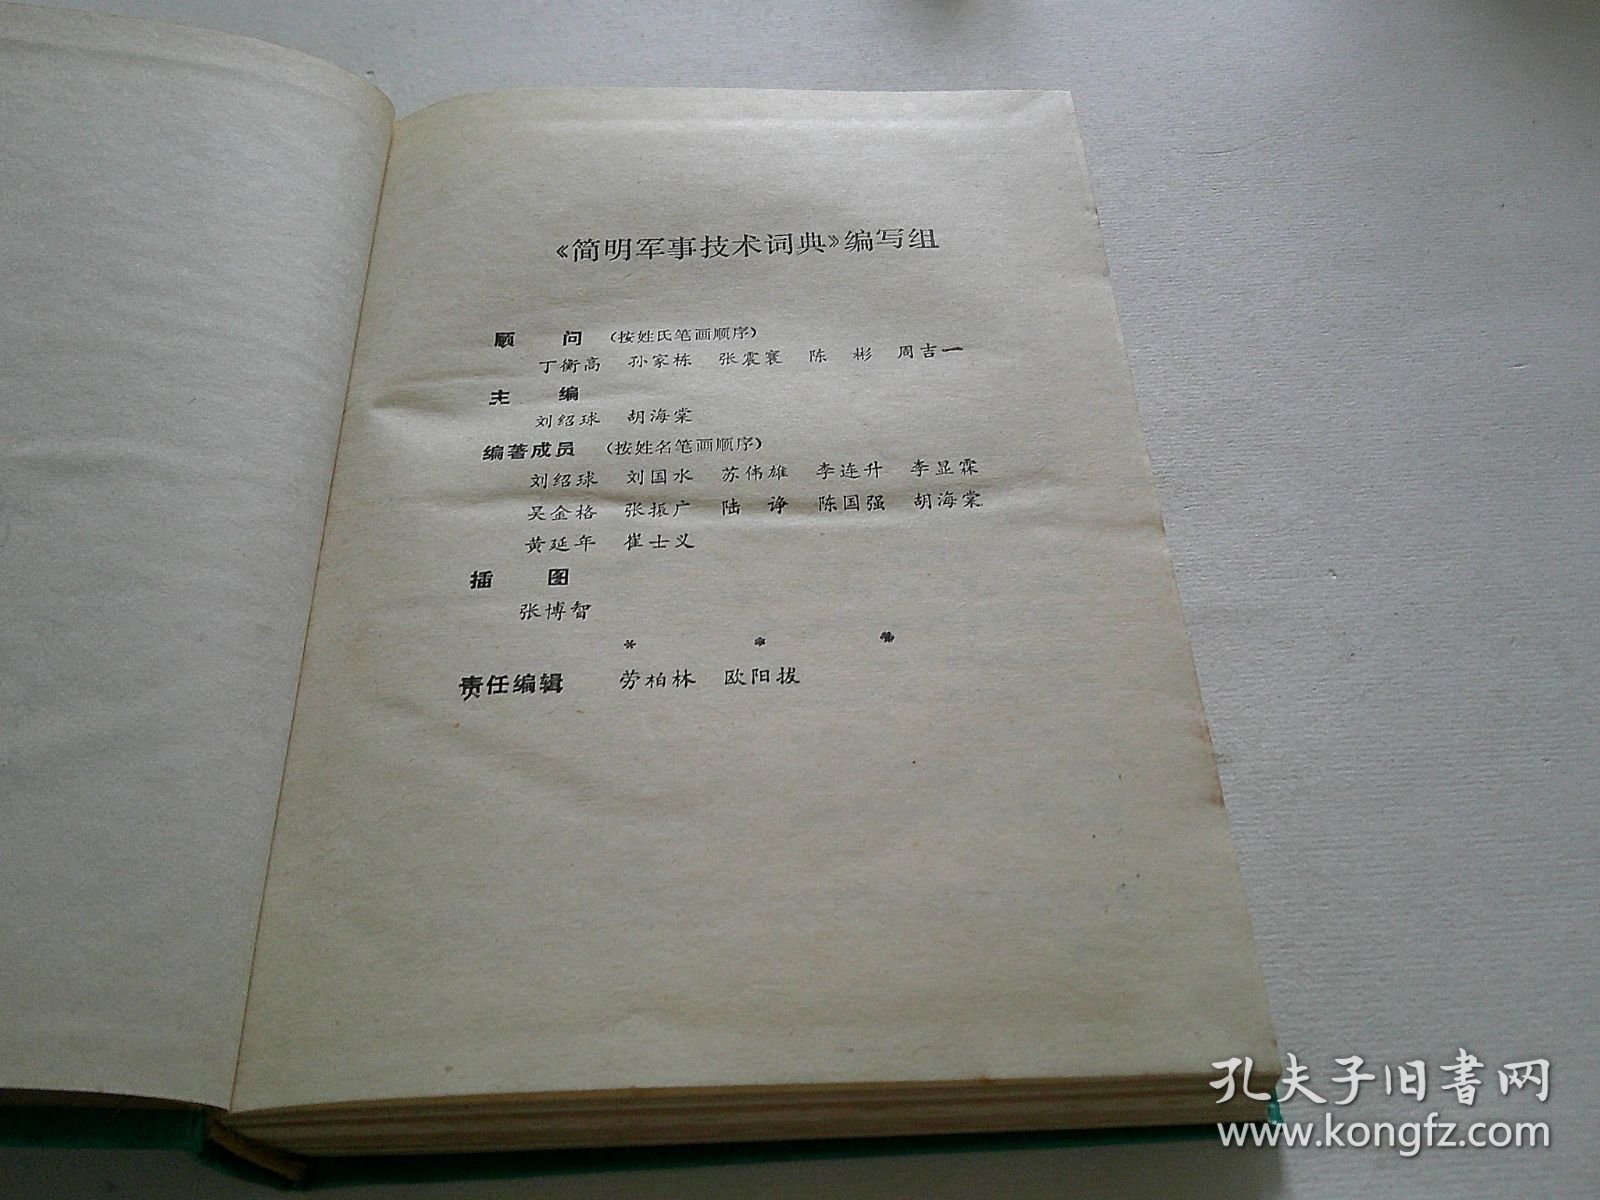 《简明军事技术词典》编写组
顾 问 (按姓氏笔画顺序)
丁衡高 孙家栋 张震寰 陈 彬 周吉一
主 编
刘绍球 胡海棠
编著成员 (按姓名笔画顺序)
刘绍球 刘国水 苏伟雄 李连升 李显霖
吴金格 张振广 陆 诤 陈国强 胡海棠
黄延年 崔士义
插 图
张博智
* * *
责任编辑 劳柏林 欧阳拔
孔夫子旧书网
www.kongfz.com